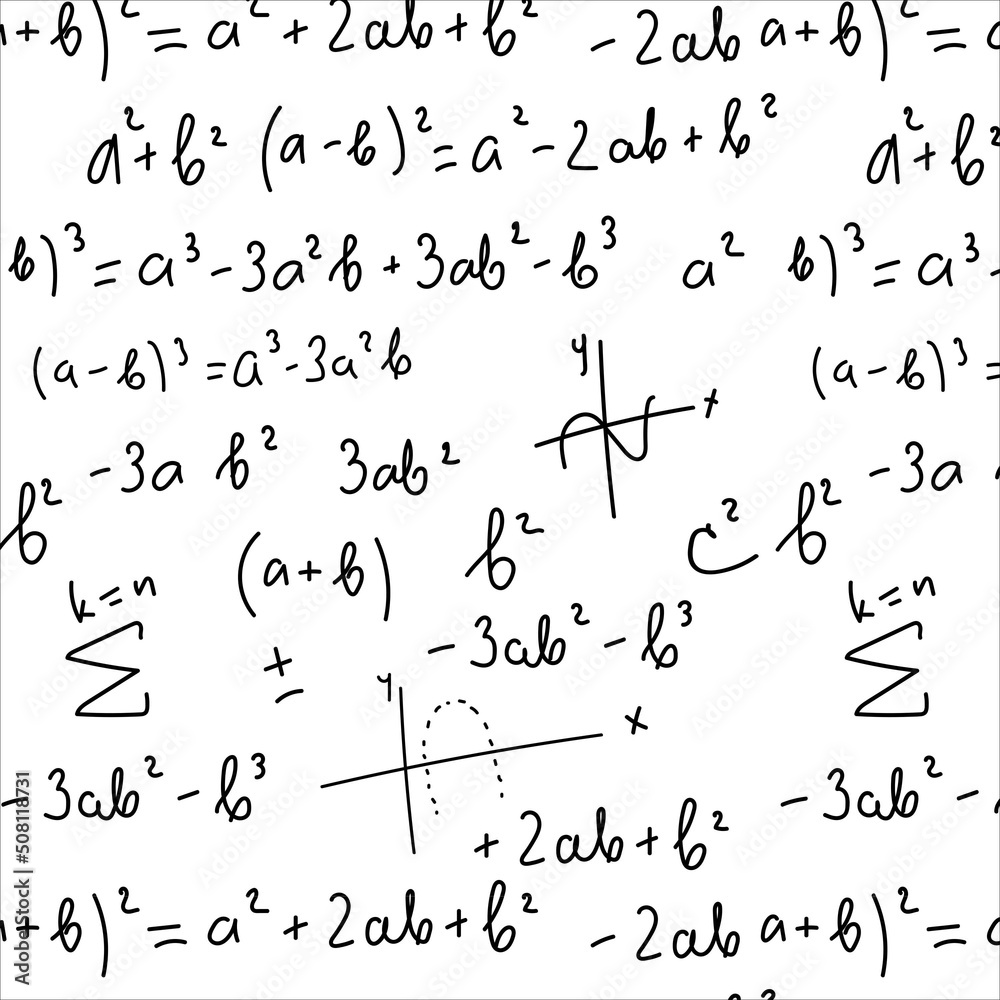 +b)² = a² + 2ab + b² - 2ab a+b)² =
a²+b² (a-b)² = a² - 2ab + b² a²+b²
b)³ = a³ - 3a²b + 3ab² - b³ a² b)³ = a³ -
(a-b)³ = a³ - 3a²b (a-b)³ =
y x
-3a b² 3ab² -3a
b² (a+b) b² c² b²
k=n k=n
Σ ± -3ab² - b³ Σ
y x
-3ab² - b³ -3ab² -
+2ab+b²
+b)² = a² + 2ab + b² - 2ab a+b)² =
Adobe Stock | #508118731